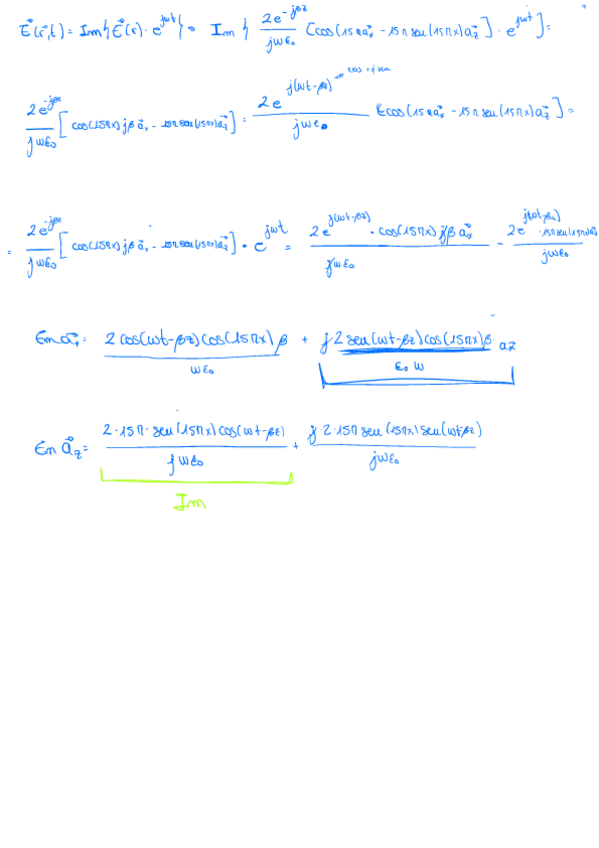 E⃗(r⃗,t) = Im{E⃗(r)·e^{jωt}} ⇒ Im { \frac{2e^{-jβz}}{jωε₀} [cos(15πa⃗ₓ - 15π sen(15πx)a⃗_z]·e^{jωt}] =
\frac{2e^{-jβz}}{jωε₀} [cos(15πx)jβ a⃗ₓ - 15π sen(15πx)a⃗_z] = \frac{2e^{j(ωt-βz)}}{jωε₀} [cos(15πa⃗ₓ - 15π sen(15πx)a⃗_z] =
= \frac{2e^{-jβz}}{jωε₀} [cos(15πx)jβ a⃗ₓ - 15π sen(15πx)a⃗_z] · e^{jωt} = \frac{2e^{j(ωt-βz)} · cos(15πx)jβ a⃗ₓ}{jωε₀} - \frac{2e^{j(ωt-βz)} · 15π sen(15πx)a⃗_z}{jωε₀}
En a⃗ₓ = \frac{2 cos(ωt-βz)cos(15πx)β}{ωε₀} + \frac{j·2 sen(ωt-βz)cos(15πx)β}{ε₀ω} az
En a⃗_z = \frac{2·15π·sen(15πx)cos(ωt-βz)}{jωε₀} + \frac{j·2·15π sen(15πx)sen(ωt-βz)}{jωε₀}
Im